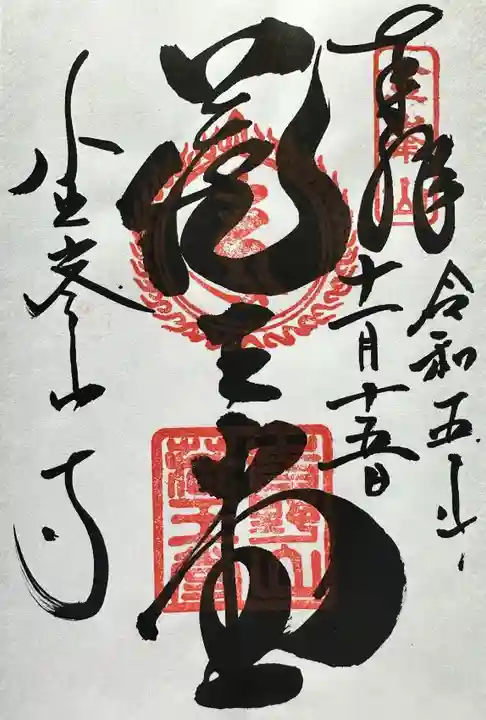 奉拝
令和五年
十一月十五日
蔵王堂
金峯山寺
金峯山